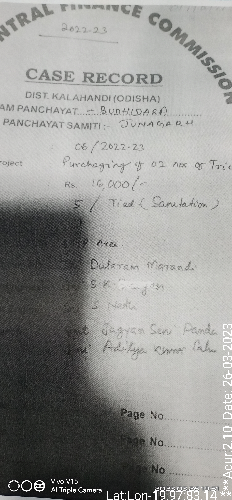 CENTRAL FINANCE COMMISSION
2022-23
CASE RECORD
DIST. KALAHANDI (ODISHA)
AM PANCHAYAT :- BUDHIDARA
PANCHAYAT SAMITI :- JUNAGARH
06/2022-23
roject Purchaging of 02 nos of Tric
Rs. 16,000/-
5 / Tied (Sanitation)
Dularam Marandi
Jagyan Seni Panda
Aditya Kumar
Page No
ge No
No
Vivo V15
AI Triple Camera
LatLon-19.97,83.14
Date: 26-03-2023